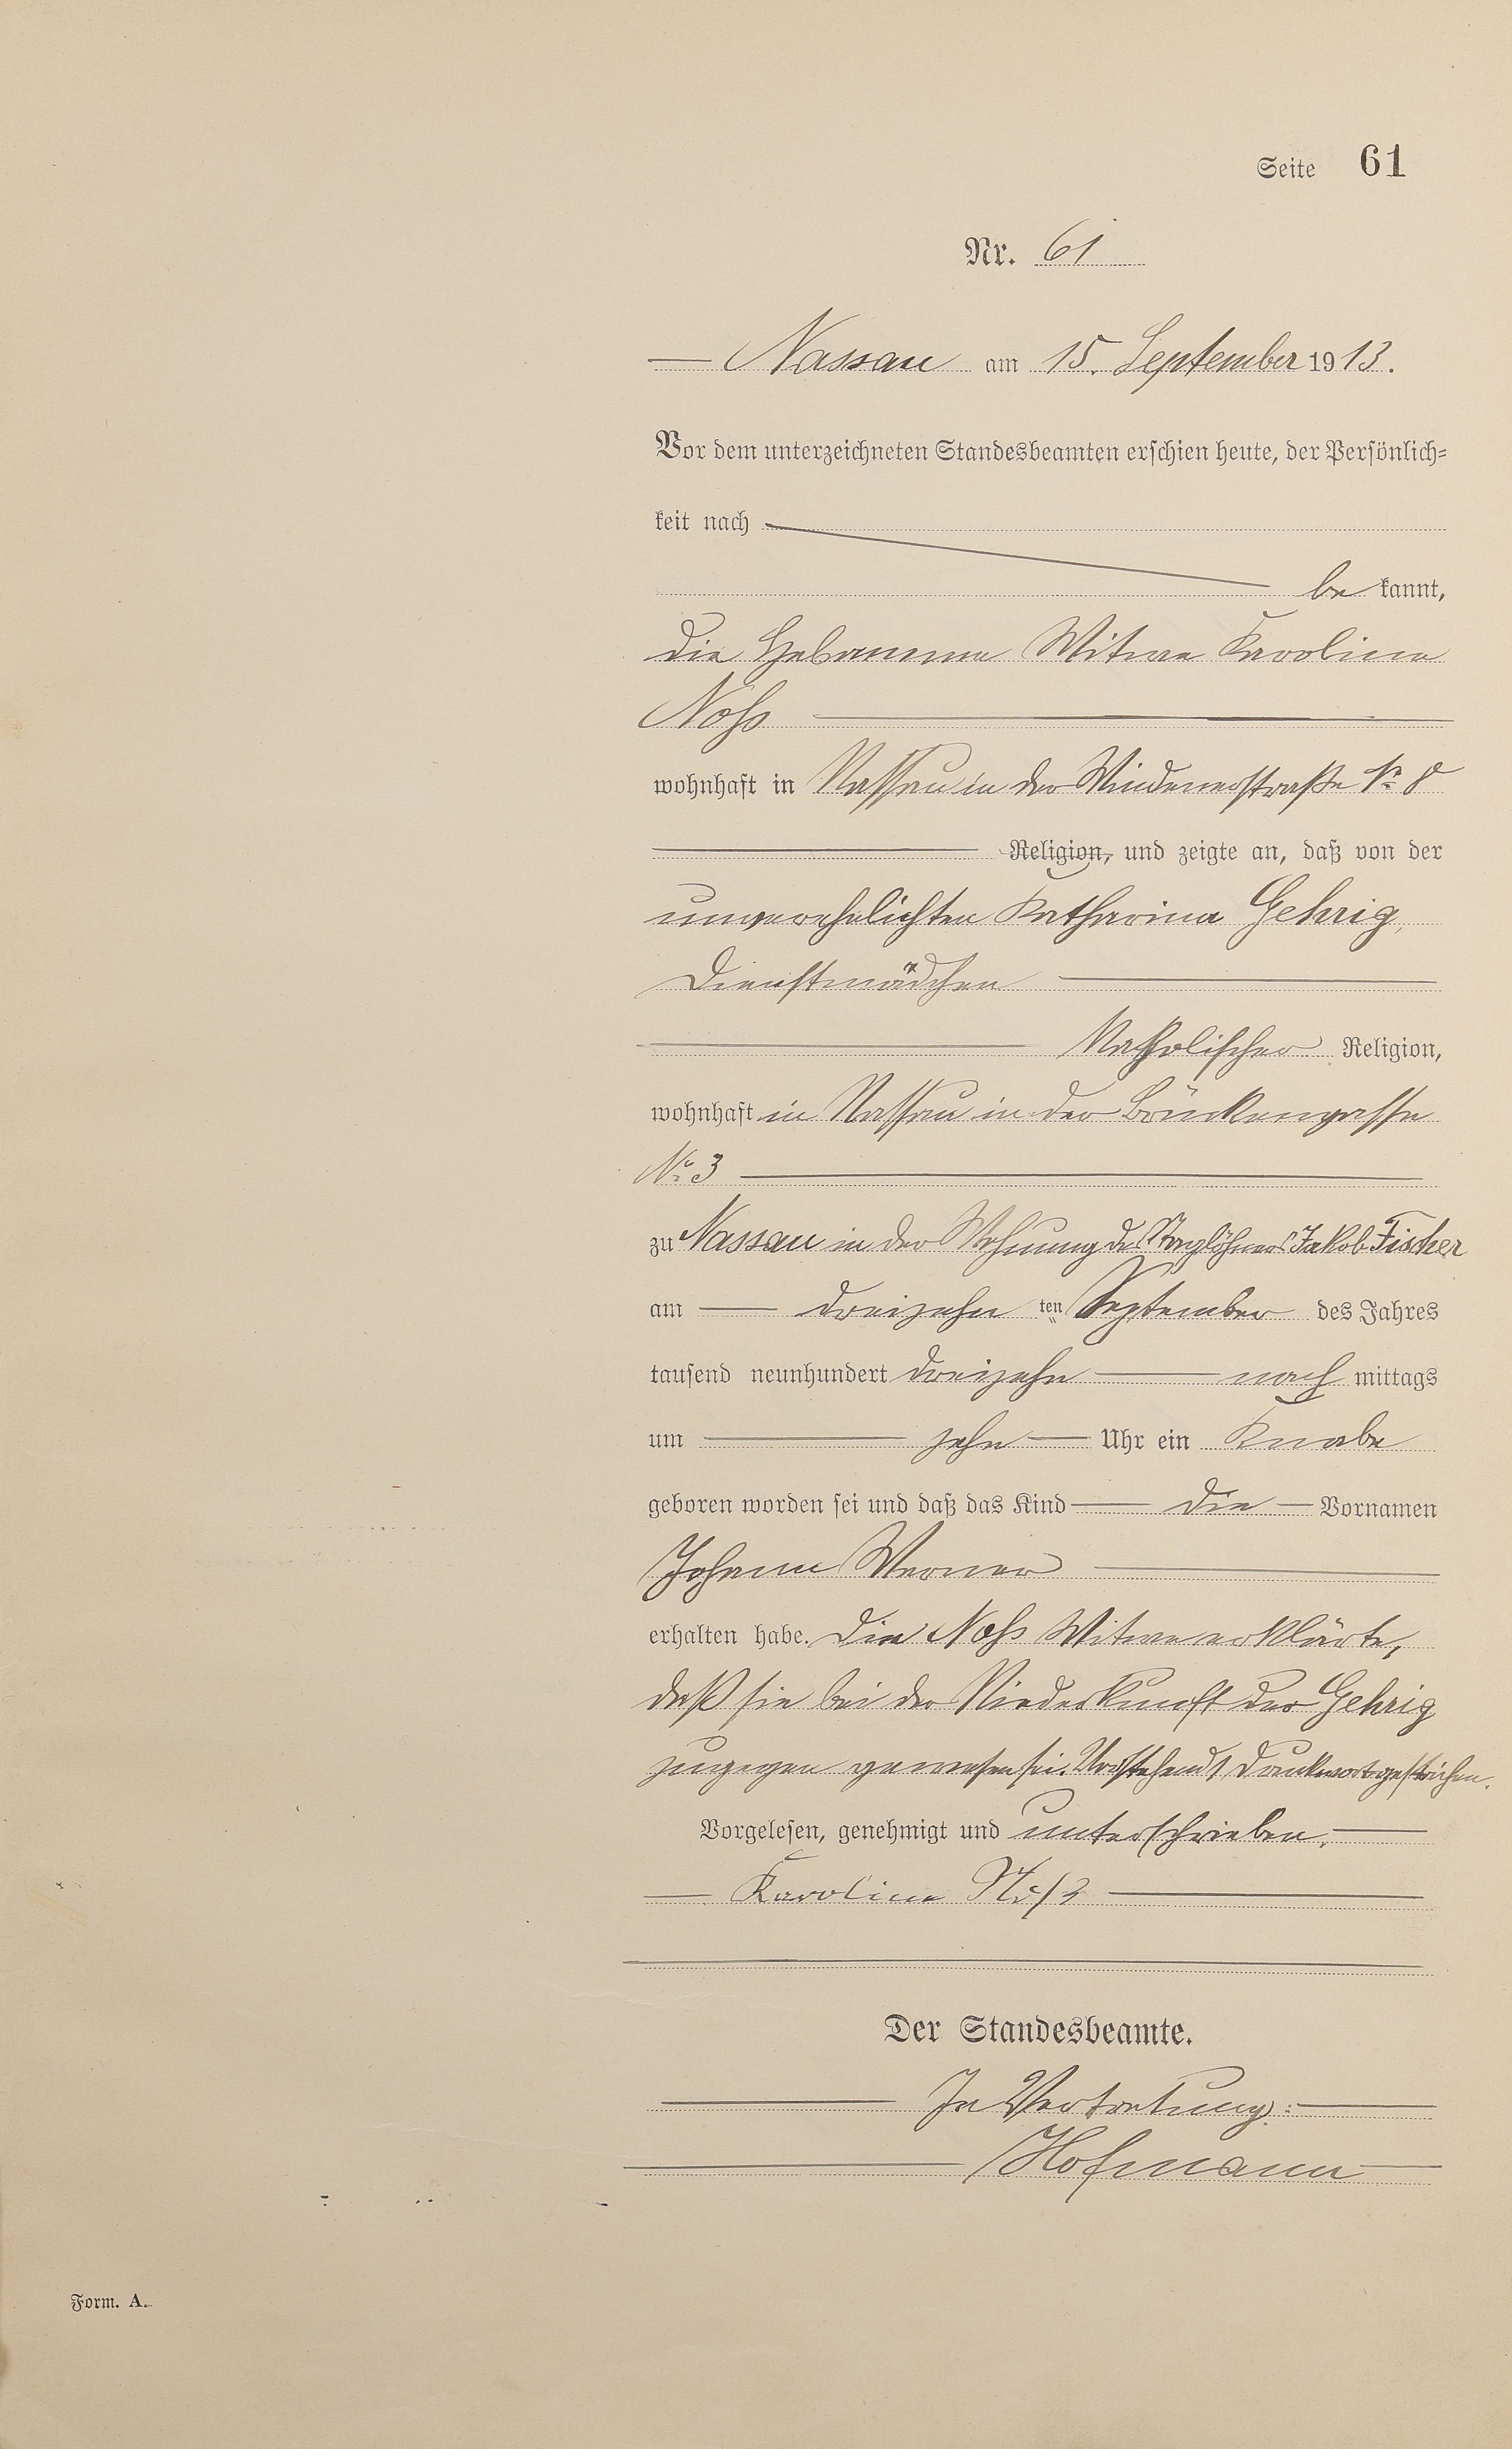 Seite 61
Nr. 61
Nassau am 15. September 1913.
Vor dem unterzeichneten Standesbeamten erschien heute, der Persönlich-
keit nach
be kannt,
die Hebamme Witwe Karoline
Noß
wohnhaft in Nassau in der Windenerstraße No 8
Religion, und zeigte an, daß von der
unverehelichten Katharina Gehrig,
Dienstmädchen
Katholischer Religion,
wohnhaft in Nassau in der Brückengasse
No 3
zu Nassau in der Wohnung des Taglöhners Jakob Fischer
am dreizehn ten September des Jahres
tausend neunhundert dreizehn nach mittags
um zehn Uhr ein Knabe
geboren worden sei und daß das Kind die Vornamen
Johann Werner
erhalten habe. Die Noß Witwe erklärte,
daß sie bei der Niederkunft der Gehrig
zugegen gewesen sei. Vorstehend 1 Druckwort gestrichen.
Vorgelesen, genehmigt und unterschrieben.
Karoline Noß
Der Standesbeamte.
In Vertretung:
Hofmann
Form. A.